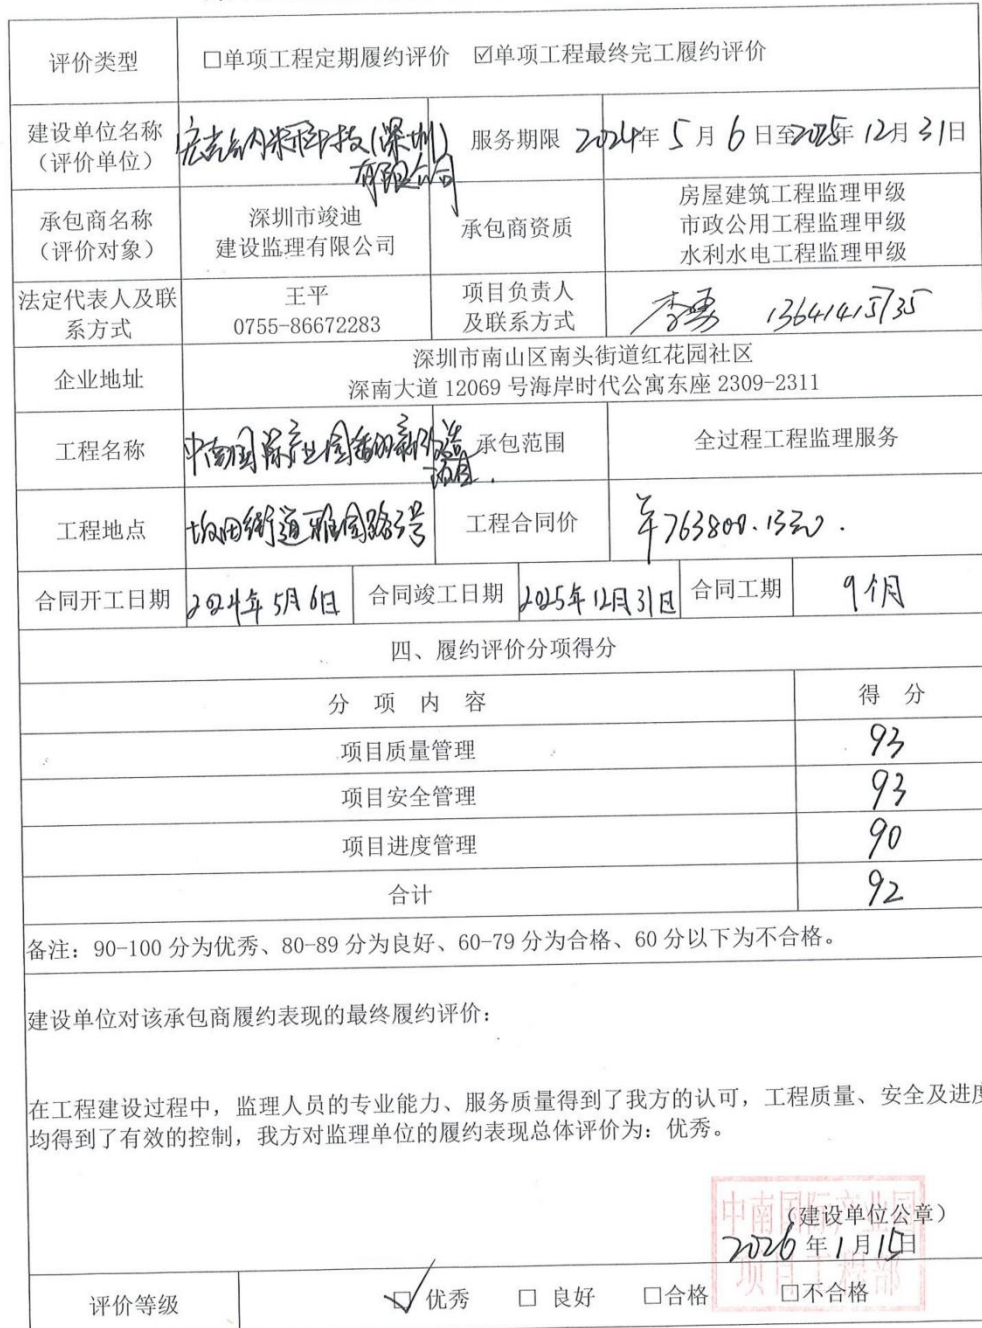 评价类型 □单项工程定期履约评价 ☑单项工程最终完工履约评价
建设单位名称
(评价单位)
(深圳)
有限公司
服务期限 2024年 5月 6日至2025年 12月 31日
承包商名称
(评价对象)
深圳市竣迪
建设监理有限公司
承包商资质
房屋建筑工程监理甲级
市政公用工程监理甲级
水利水电工程监理甲级
法定代表人及联
系方式
王平
0755-86672283
项目负责人
及联系方式
李勇 13641415735
企业地址
深圳市南山区南头街道红花园社区
深南大道 12069 号海岸时代公寓东座 2309-2311
工程名称
中南国际产业园
项目.
承包范围
全过程工程监理服务
工程地点
坂田街道雅园路3号
工程合同价
763800.13元.
合同开工日期 2024年5月6日 合同竣工日期 2025年12月31日 合同工期 9个月
四、履约评价分项得分
分 项 内 容 得 分
项目质量管理 93
项目安全管理 93
项目进度管理 90
合计 92
备注：90-100 分为优秀、80-89 分为良好、60-79 分为合格、60 分以下为不合格。
建设单位对该承包商履约表现的最终履约评价：
在工程建设过程中，监理人员的专业能力、服务质量得到了我方的认可，工程质量、安全及进度
均得到了有效的控制，我方对监理单位的履约表现总体评价为：优秀。
中南国际产业园
项目工程部
(建设单位公章)
2026 年 1 月 15日
评价等级 ☑ 优秀 □ 良好 □合格 □不合格